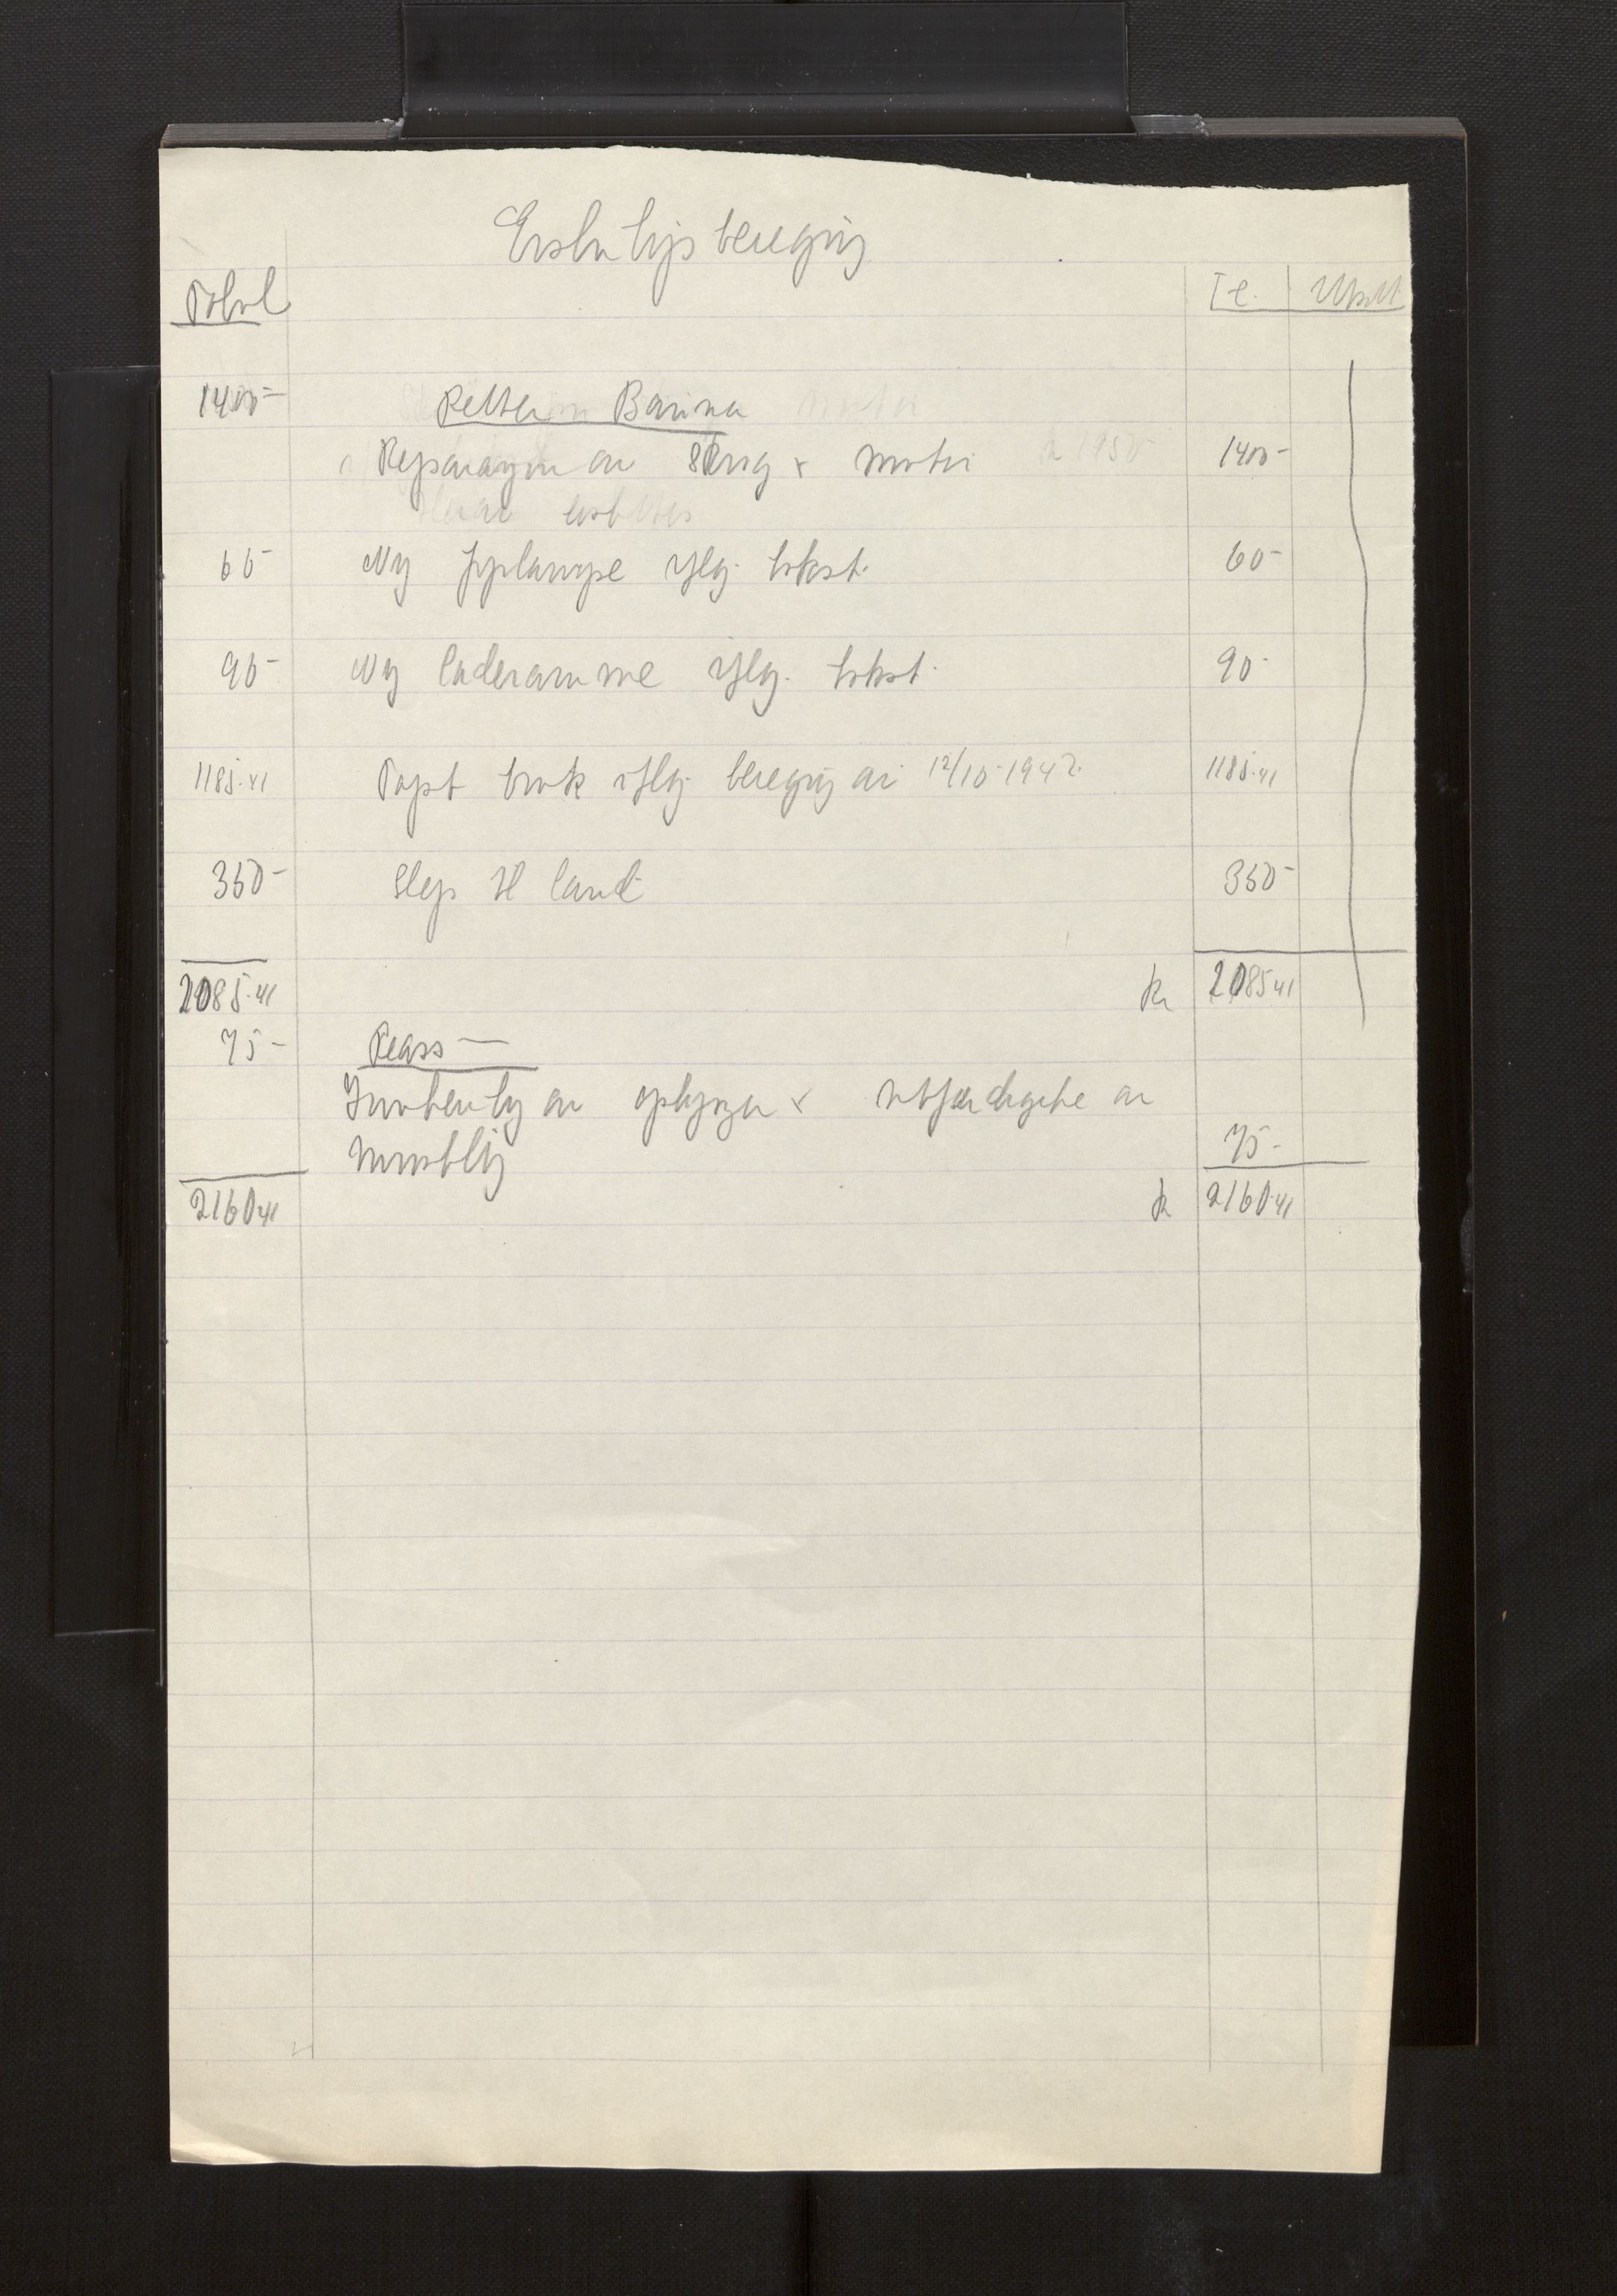 Erstatningsberegning
Totalt I e.
1400-
Petter Barina
Reparasjon av skrog & motor 1400-
60- Ny lyslampe iflg. takst. 60-
90- Ny laderamme iflg. takst. 90-
1185.41 Tapt bruk iflg beregning av 12/10-1942. 1185.41
350- Slep til land 350-
2085.41 kr 2085.41
75- Reass —
Innhenting av oplysninger & utferdigelse av
innstilling 75-
2160.41 kr 2160.41